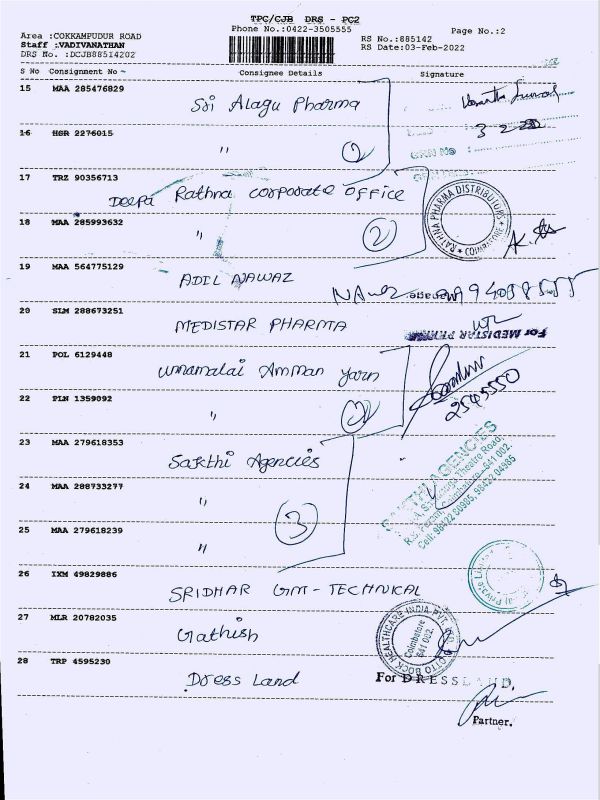 TPC/CJB DRS - PC2
Phone No.:0422-3505555
Page No.:2
Area :COKKAMPUDUR ROAD
Staff :VADIVANATHAN
DRS No. :DCJB88514202
RS No.:885142
RS Date:03-Feb-2022
S No Consignment No Consignee Details Signature
15 MAA 285476829
Sri Alagu Pharma
16 HSR 2276015
" 2
3 2 22
GRN No :
17 TRZ 90356713
Deepa Rathna Corporate Office
RATHNA PHARMA DISTRIBUTORS
COIMBATORE
18 MAA 285993632
" 2
19 MAA 564775129
ADIL NAWAZ
20 SLM 288673251
MEDISTAR PHARMA
For MEDISTAR
21 POL 6129448
Unnamalai Amman Yarn
22 PLN 1359092
" 2
2545550
23 MAA 279618353
Sakthi Agencies
24 MAA 288733277
"
SAKTHI AGENCIES
Theatre Road,
R.S. Puram, Coimbatore-641 002.
Cell: 98422 00985, 98422 04985
25 MAA 279618239
" 3
26 IXM 49829886
SRIDHAR GMT-TECHNICAL
Private
27 MLR 20782035
Gathish
OTTO BOCK HEALTHCARE INDIA PVT. LTD.
Coimbatore
641 002.
28 TRP 4595230
Dress Land
For DRESSLAND,
Partner.